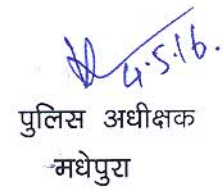 4.5.16.
पुलिस अधीक्षक
मधेपुरा